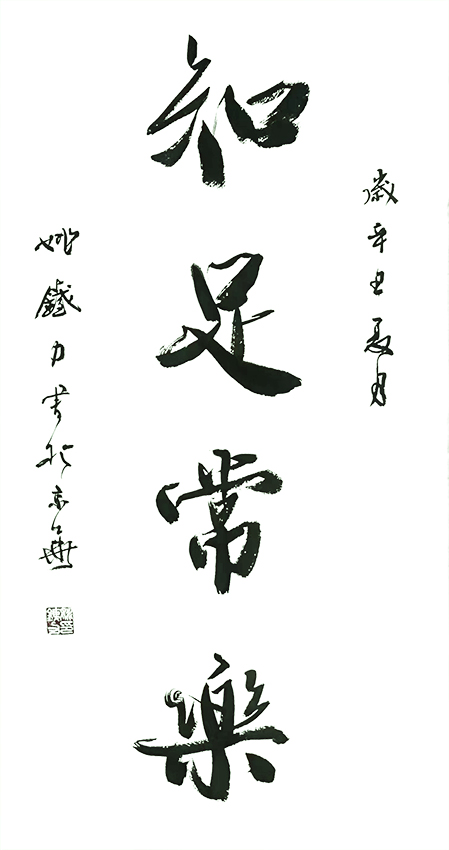 歲辛丑夏月
知足常樂
姚鐵力書於京華